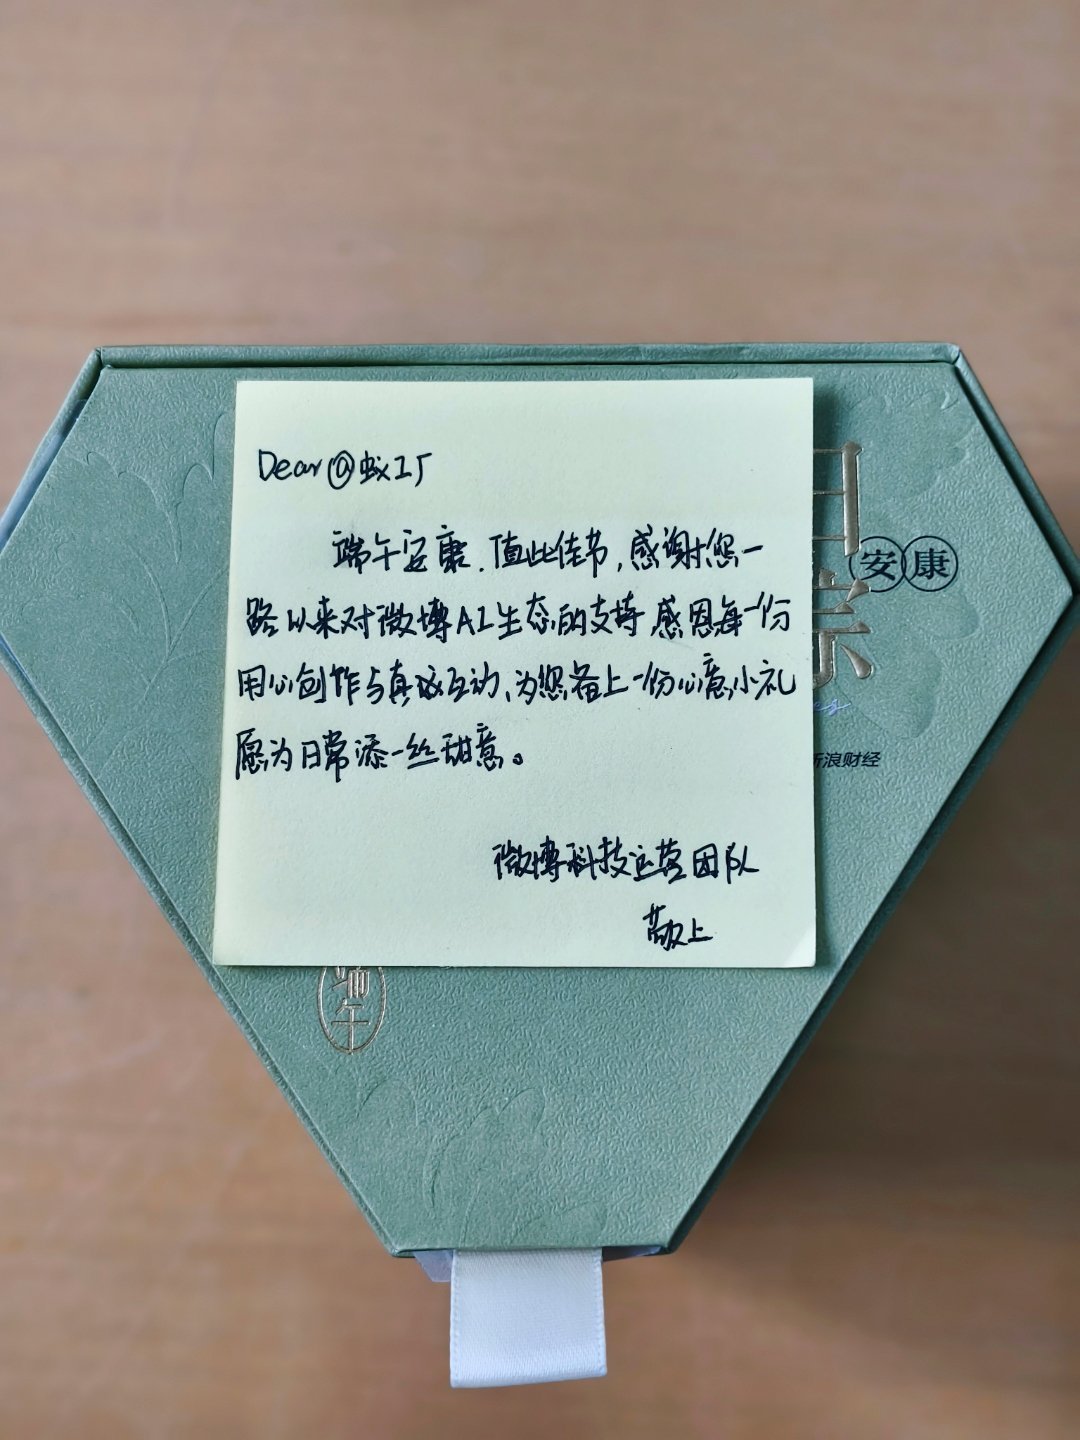 Dear @蚁工厂
端午安康.值此佳节,感谢您一
路以来对微博AI生态的支持 感恩每一份
用心创作与真诚互动、为您备上一份心意小礼
愿为日常添一丝甜意。
微博科技运营团队
敬上
安康
新浪财经
端午